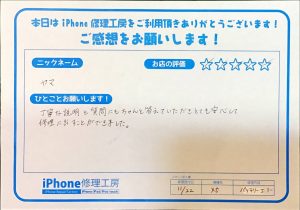 本日は iPhone 修理工房をご利用頂きありがとうございます！
ご感想をお願いします！
ニックネーム
お店の評価
ヤマ
ひとことお願いします！
丁寧な説明と質問にもちゃんと答えていただきとても安心して
修理に出すことができました。
iPhone修理工房
11/22
XS
バッテリーエラー